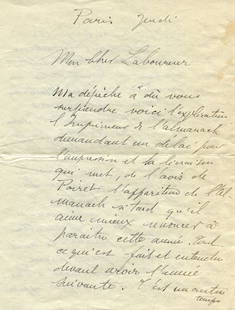 Paris Jeudi
Mon cher Laboureur
Ma dépêche a dû vous
surprendre voici l'explication
L'Imprimeur de l'almanach
demandant un délai pour
l'impression et la livraison
qui met, de l'avis de
Poiret l'apparition de l'Al
manach si tard qu'il
aime mieux renoncer à
paraître cette année. Tout
ce qui est fait et entendu
devant servir l'année
suivante. Il est
temps